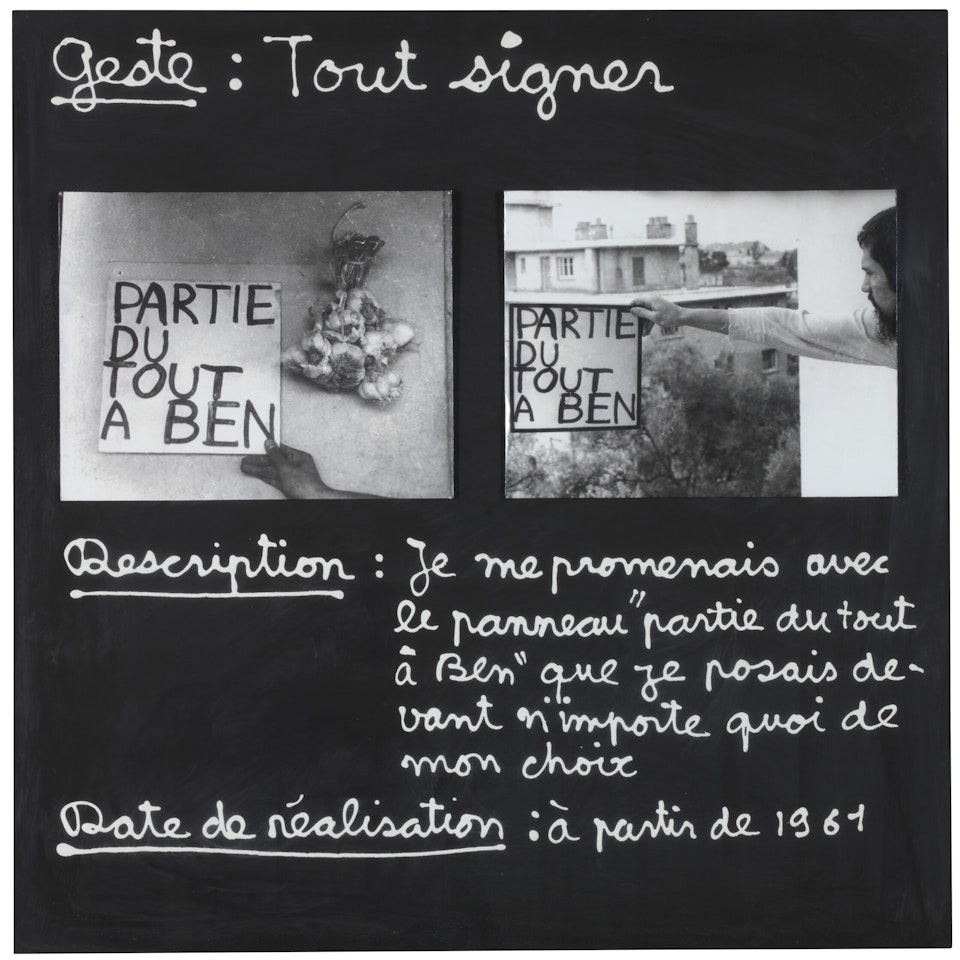 Geste : Tout signer
PARTIE
DU
TOUT
A BEN
PARTIE
DU
TOUT
A BEN
Description : Je me promenais avec
le panneau "partie du tout
â Ben" que je posais de-
vant n'importe quoi de
mon choix
Date de réalisation : à partir de 1961